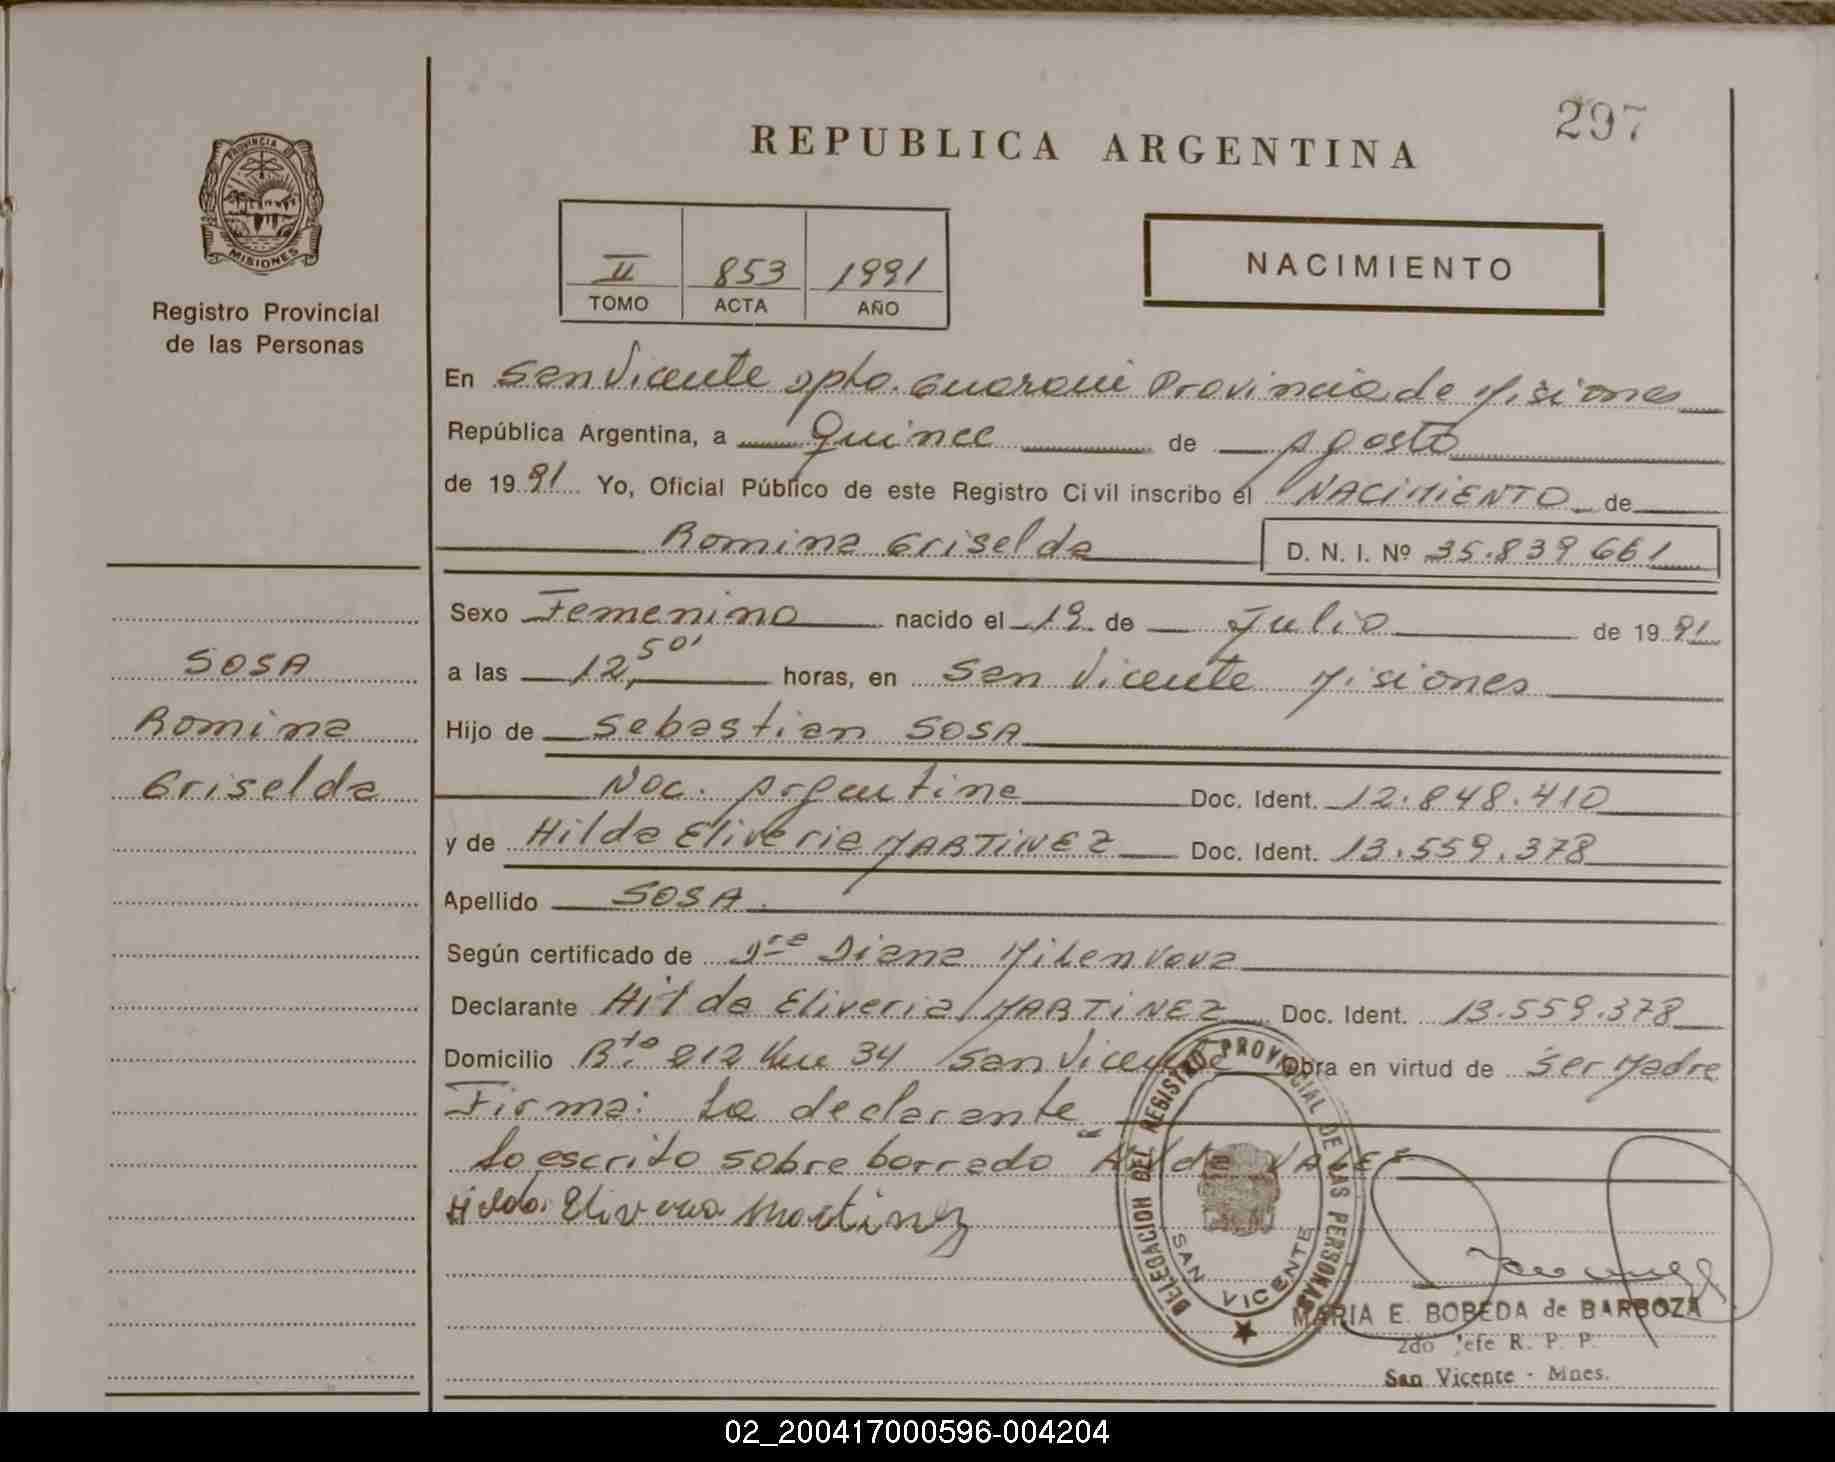 297
REPUBLICA ARGENTINA
PROVINCIA DE
MISIONES
Registro Provincial
de las Personas
II 853 1991
TOMO ACTA AÑO
NACIMIENTO
En San Vicente Dpto. Guarani Provincia de Misiones
República Argentina, a Quince de Agosto
de 1991 Yo, Oficial Público de este Registro Civil inscribo el NACIMIENTO de
Romina Griselda D. N. I. Nº 35.839661
Sexo Femenino nacido el 19 de Julio de 1991
a las 12,50' horas, en San Vicente Misiones
Hijo de Sebastian SOSA
Nac. Argentina Doc. Ident. 12.848.410
y de Hilda Eliveria MARTINEZ Doc. Ident. 13.559.378
Apellido SOSA
Según certificado de Dra Diana
Declarante Hilda Eliveria MARTINEZ Doc. Ident. 13.559.378
Domicilio Bto. 212 Km 34 San Vicente Obra en virtud de Ser Madre
Firma: La declarante
Lo escrito sobre borrado "Hilda VALE
Hilda Elivera Martinez
SOSA
Romina
Griselda
DELEGACION DEL REGISTRO PROVINCIAL DE LAS PERSONAS
SAN VICENTE
MARIA E. BOBEDA de BARBOZA
2do Jefe R. P. P.
San Vicente - Mnes.
02_200417000596-004204